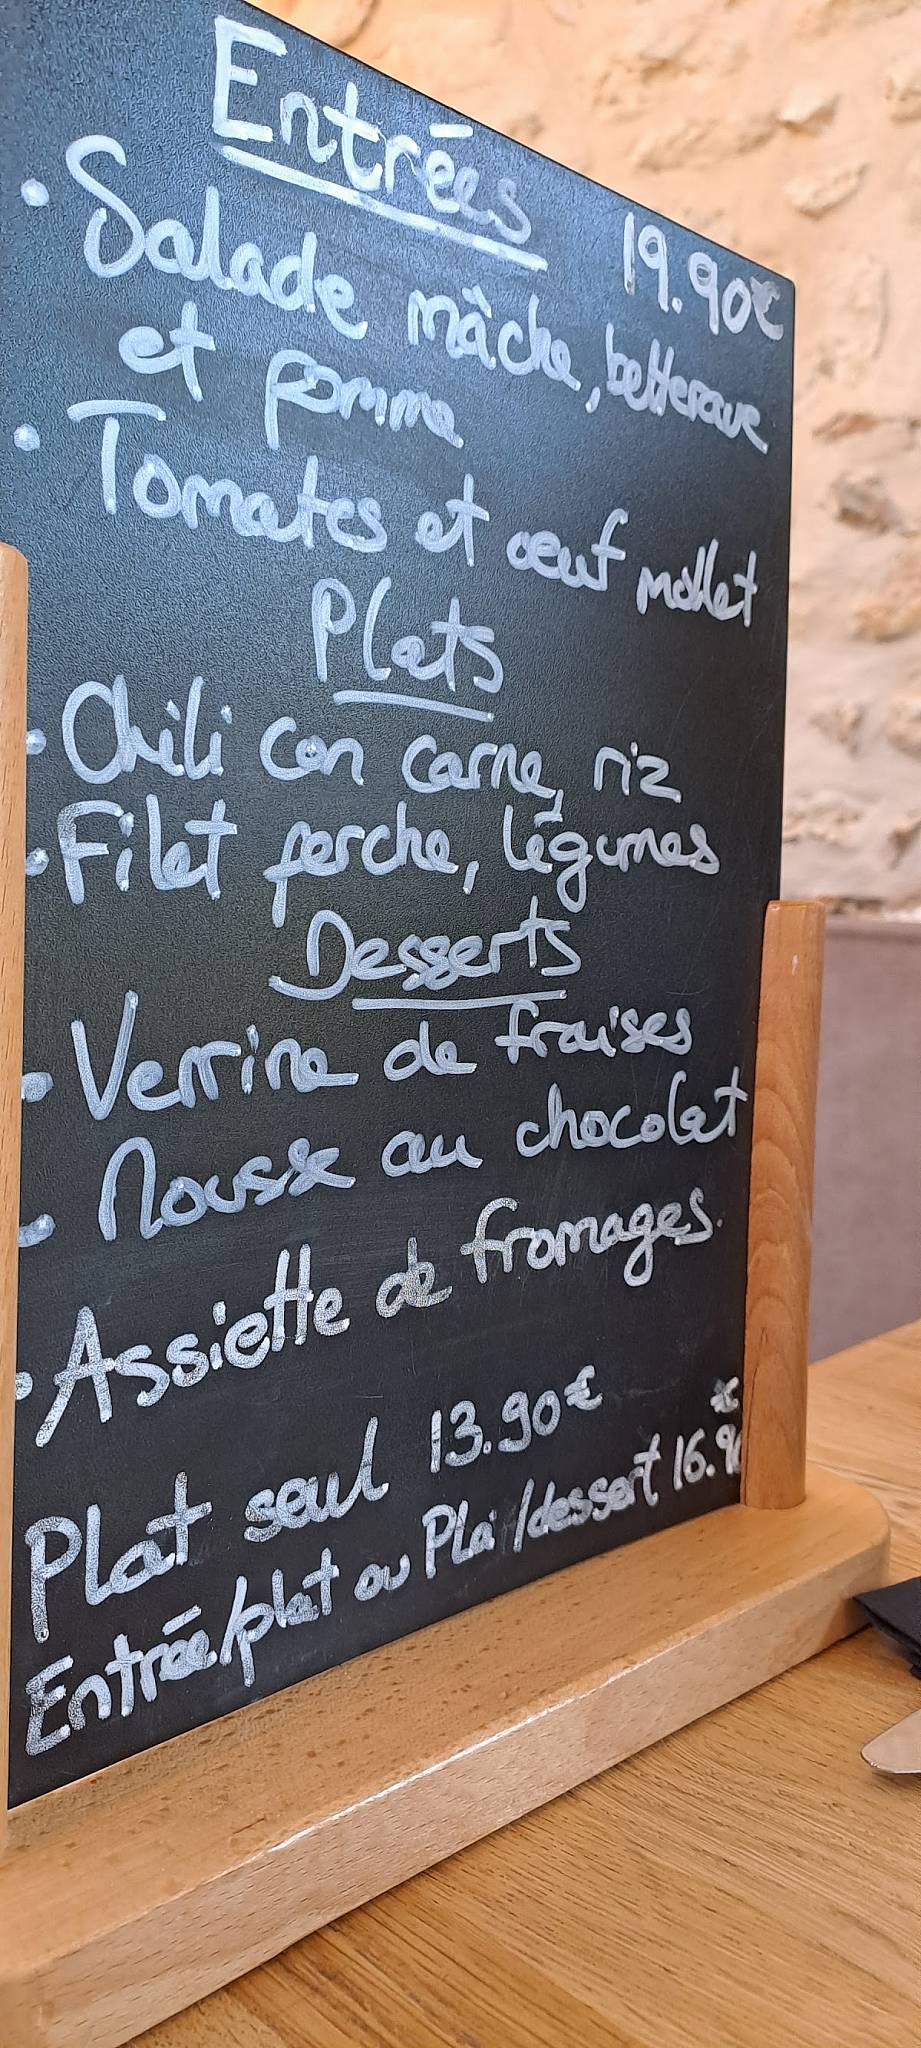 Entrées
19.90€
• Salade mâche, betterave
et pomme
• Tomates et œuf mollet
Plats
• Chili con carne, riz
• Filet perche, légumes
Desserts
• Verrine de fraises
• Mousse au chocolat
• Assiette de fromages.
Plat seul 13.90€
Entrée/plat ou Pla /dessert 16.90€